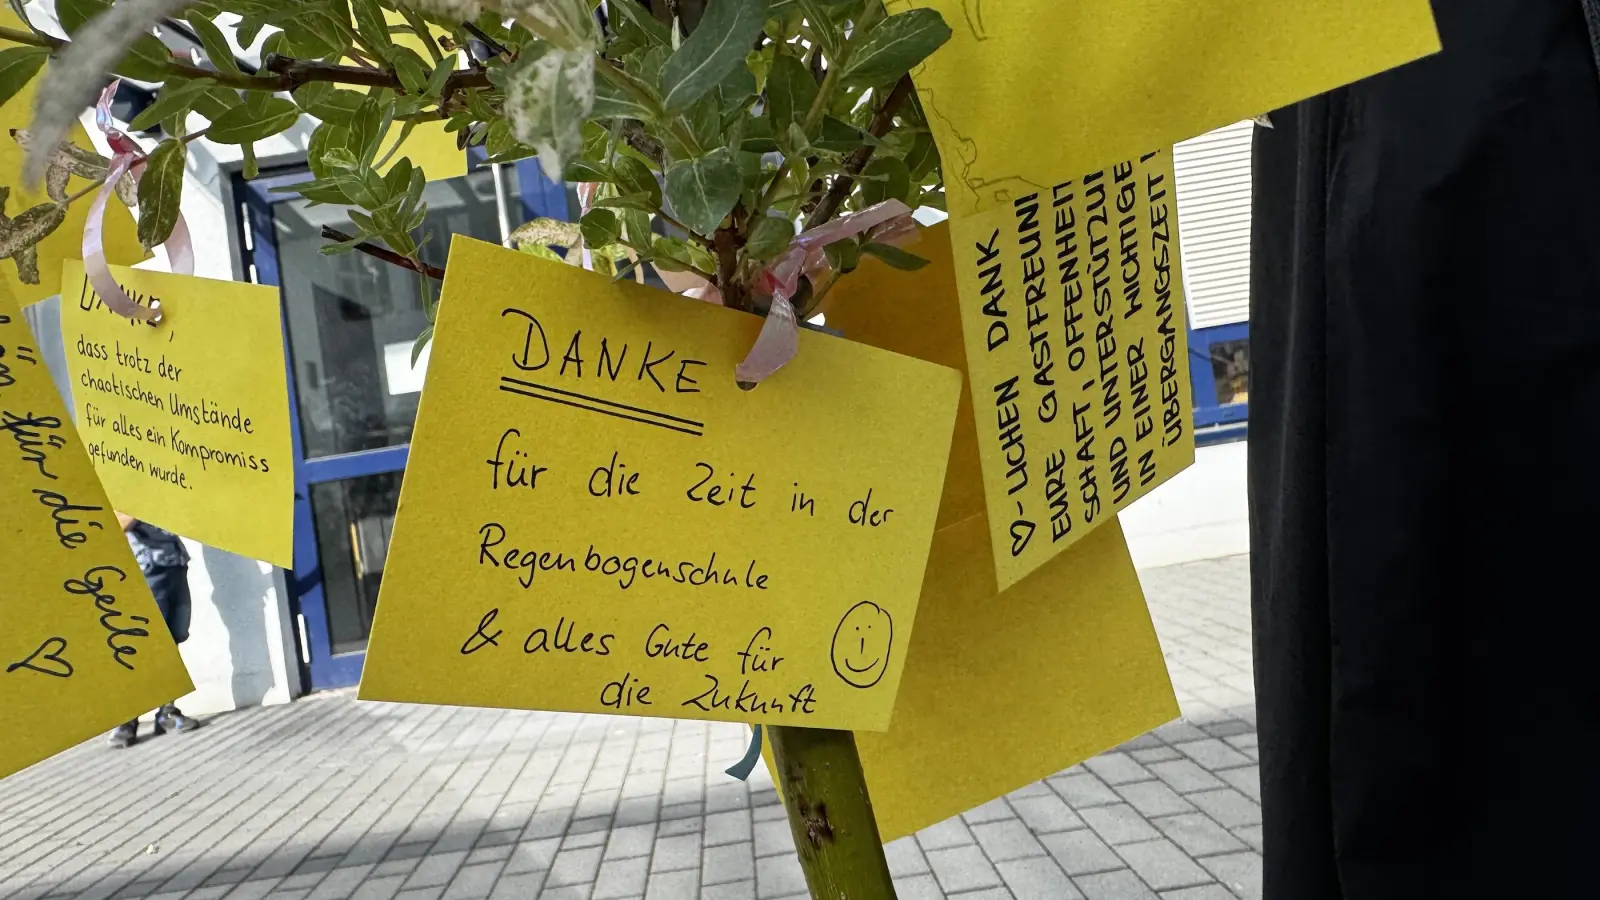 DANKE,
dass trotz der
chaotischen Umstände
für alles ein Kompromiss
gefunden wurde.
für die Geile
DANKE
für die Zeit in der
Regenbogenschule
& alles Gute für
die Zukunft
♡-LICHEN DANK
EURE GASTFREUN
SCHAFT, OFFENHEIT
UND UNTERSTÜTZU
IN EINER WICHTIGE
ÜBERGANGSZEIT !